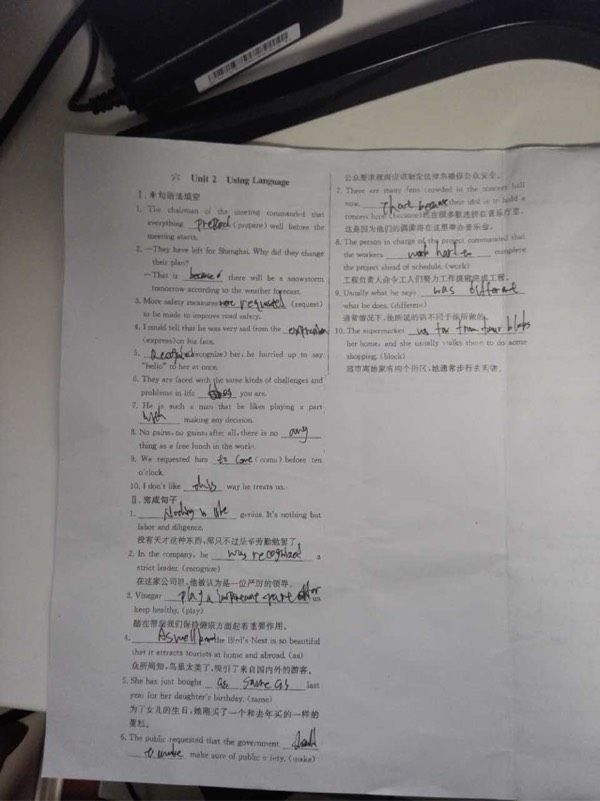 六 Unit 2 Using Language
Ⅰ. 单句语法填空
1. The chairman of the meeting commanded that
everything (prepare) well before the
meeting starts.
2. —They have left for Shanghai. Why did they change
their plan?
—That is because there will be a snowstorm
tomorrow according to the weather forecast.
3. More safety measures were requested (request)
to be made to improve road safety.
4. I could tell that he was very sad from the expression
(express) on his face.
5. (recognize) her, he hurried up to say
"hello" to her at once.
6. They are faced with the same kinds of challenges and
problems in life you are.
7. He is such a man that he likes playing a part
making any decision.
8. No pains, no gains; after all, there is no any
thing as a free lunch in the world.
9. We requested him to come (come) before ten
o'clock.
10. I don't like this way he treats us.
Ⅱ. 完成句子
1. Nothing is like genius. It's nothing but
labor and diligence.
没有天才这种东西,那只不过是辛劳勤勉罢了。
2. In the company, he was recognized a
strict leader. (recognize)
在这家公司里,他被认为是一位严厉的领导。
3. Vinegar play a important part us
keep healthy. (play)
醋在帮助我们保持健康方面起着重要作用。
4. As well the Bird's Nest is so beautiful
that it attracts tourists at home and abroad. (as)
众所周知,鸟巢太美了,吸引了来自国内外的游客。
5. She has just bought as same as last
year for her daughter's birthday. (same)
为了女儿的生日,她刚买了一个和去年买的一样的
蛋糕。
6. The public requested that the government should
to make make sure of public safety. (make)
公众要求政府应该制定法律来确保公众安全。
7. There are many fans crowded in the concert hall
now. That because their idol is to hold a
concert here. (because) 现在很多歌迷挤在音乐厅里,
这是因为他们的偶像将在这里举办音乐会。
8. The person in charge of the project commanded that
the workers work hard to complete
the project ahead of schedule. (work)
工程负责人命令工人们努力工作提前完成工程。
9. Usually what he says was different
what he does. (different)
通常情况下,他所说的话不同于他所做的。
10. The supermarket far from four blocks
her home, and she usually walks there to do some
shopping. (block)
超市离她家有四个街区,她通常步行去购物。